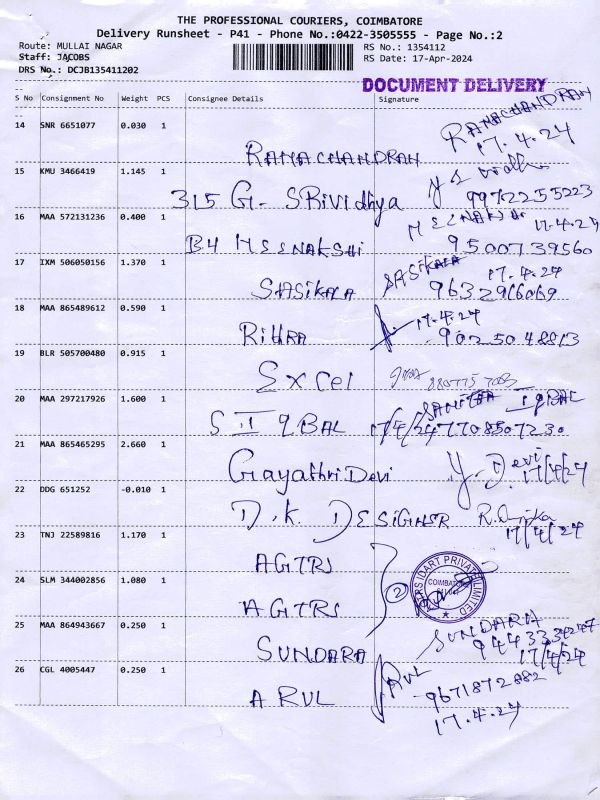 THE PROFESSIONAL COURIERS, COIMBATORE
Delivery Runsheet - P41 - Phone No.:0422-3505555 - Page No.:2
Route: MULLAI NAGAR RS No.: 1354112
Staff: JACOBS RS Date: 17-Apr-2024
DRS No.: DCJB135411202
DOCUMENT DELIVERY
S No Consignment No Weight PCS Consignee Details Signature
14 SNR 6651077 0.030 1 RAMACHANDRAN RAMACHANDRAN
17.4.24
15 KMU 3466419 1.145 1 315 G. SRividhya 9972255223
16 MAA 572131236 0.400 1 B4 MEENAKSHI MEENAKSHI 17.4.24
9500739560
17 IXM 506050156 1.370 1 SASIKALA SASIKALA 17.4.24
9632916069
18 MAA 865489612 0.590 1 RITHRA 17.4.24
9025048813
19 BLR 505700480 0.915 1 EXCEL
20 MAA 297217926 1.600 1 S IQBAL IQBAL
17/4/24 7708507230
21 MAA 865465295 2.660 1 Gayathri Devi Y. Devi
17/4/24
22 DDG 651252 -0.010 1 D.K. DESIGNER R.
17/4/24
23 TNJ 22589816 1.170 1 AGTRS
24 SLM 344002856 1.080 1 AGTRS 2
PRIVATE LIMITED
COIMBATORE
25 MAA 864943667 0.250 1 SUNDARA SUNDARA
17/4/24
26 CGL 4005447 0.250 1 ARUL ARUL
9671872882
17.4.24